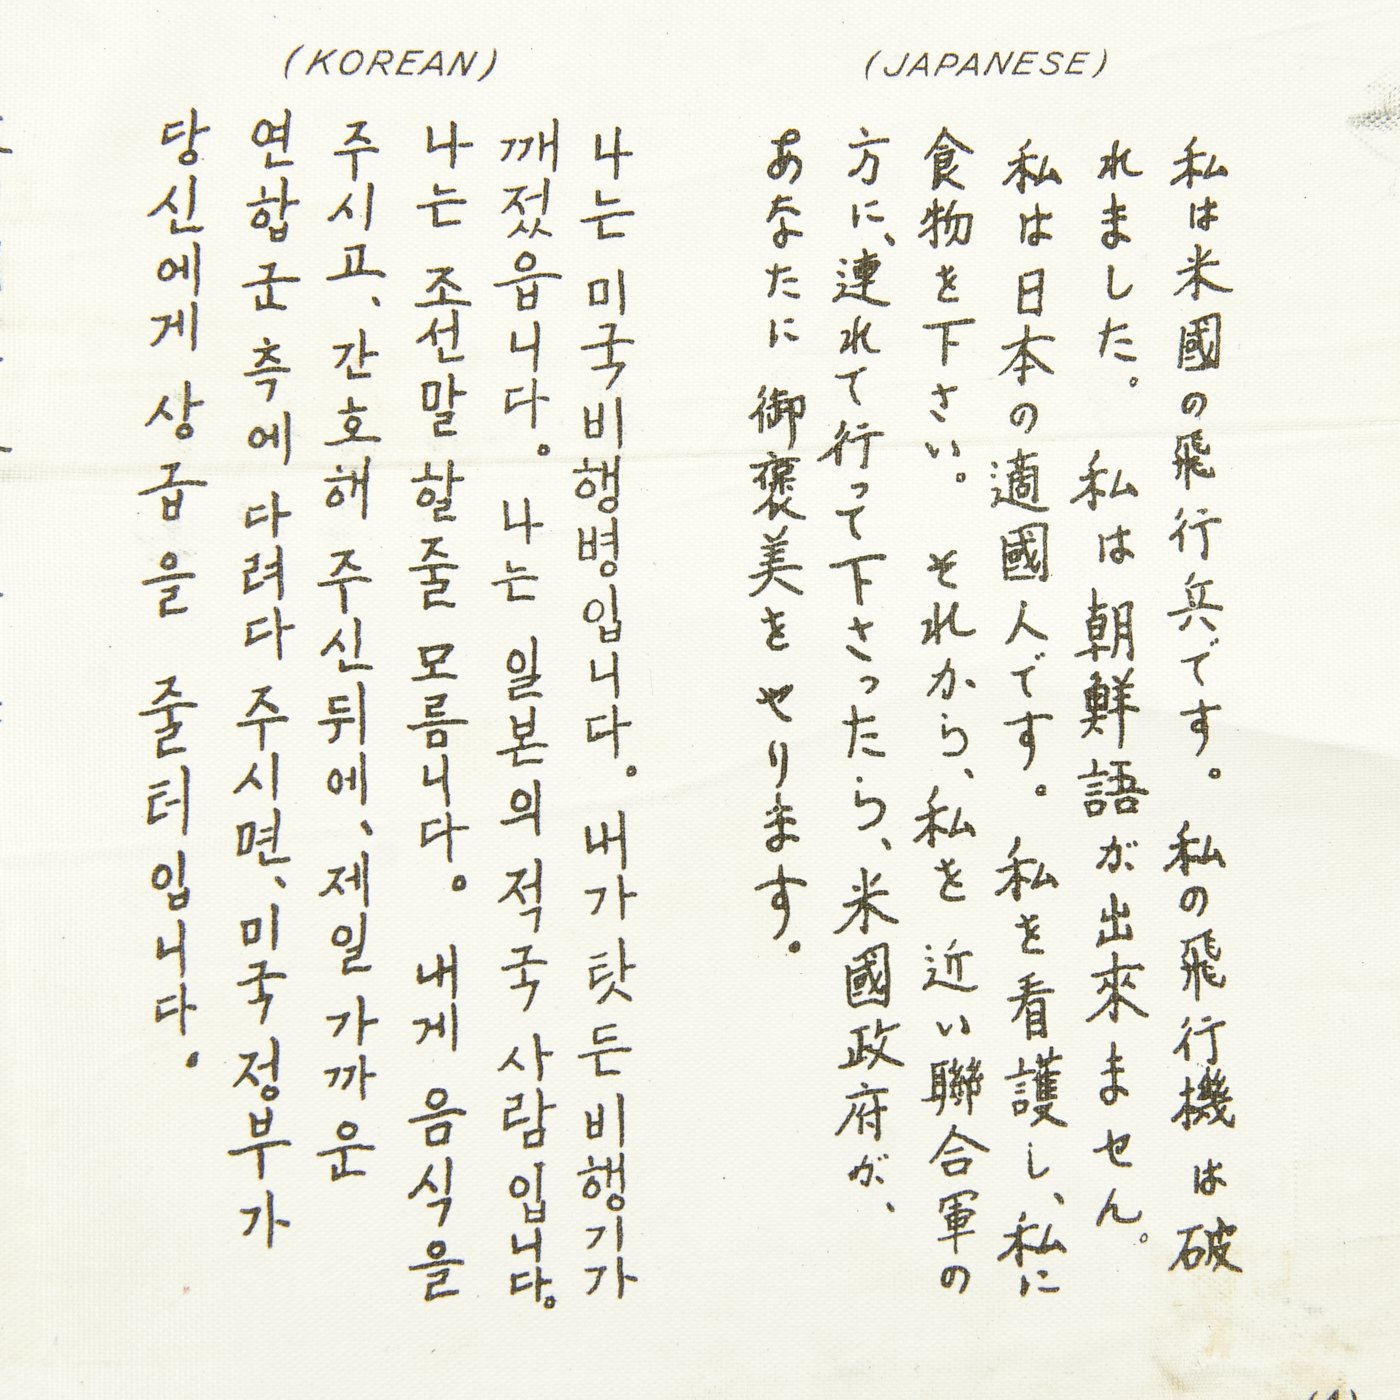 (JAPANESE)
私は米國の飛行兵です。私の飛行機は破
れました。 私は朝鮮語が出來ません。
私は日本の適國人です。私を看護し、私に
食物を下さい。 それから、私を近い聯合軍の
方に、連れて行って下さったら、米國政府が、
あなたに御褒美をやります。
(KOREAN)
나는 미국비행병입니다。 내가 탓든 비행기가
깨젔읍니다。 나는 일본의 적국 사람입니다。
나는 조선말 할줄 모름니다。 내게 음식을
주시고、간호해 주신뒤에、제일 가까운
연합군측에 다려다 주시면、미국정부가
당신에게 상급을 줄터입니다。